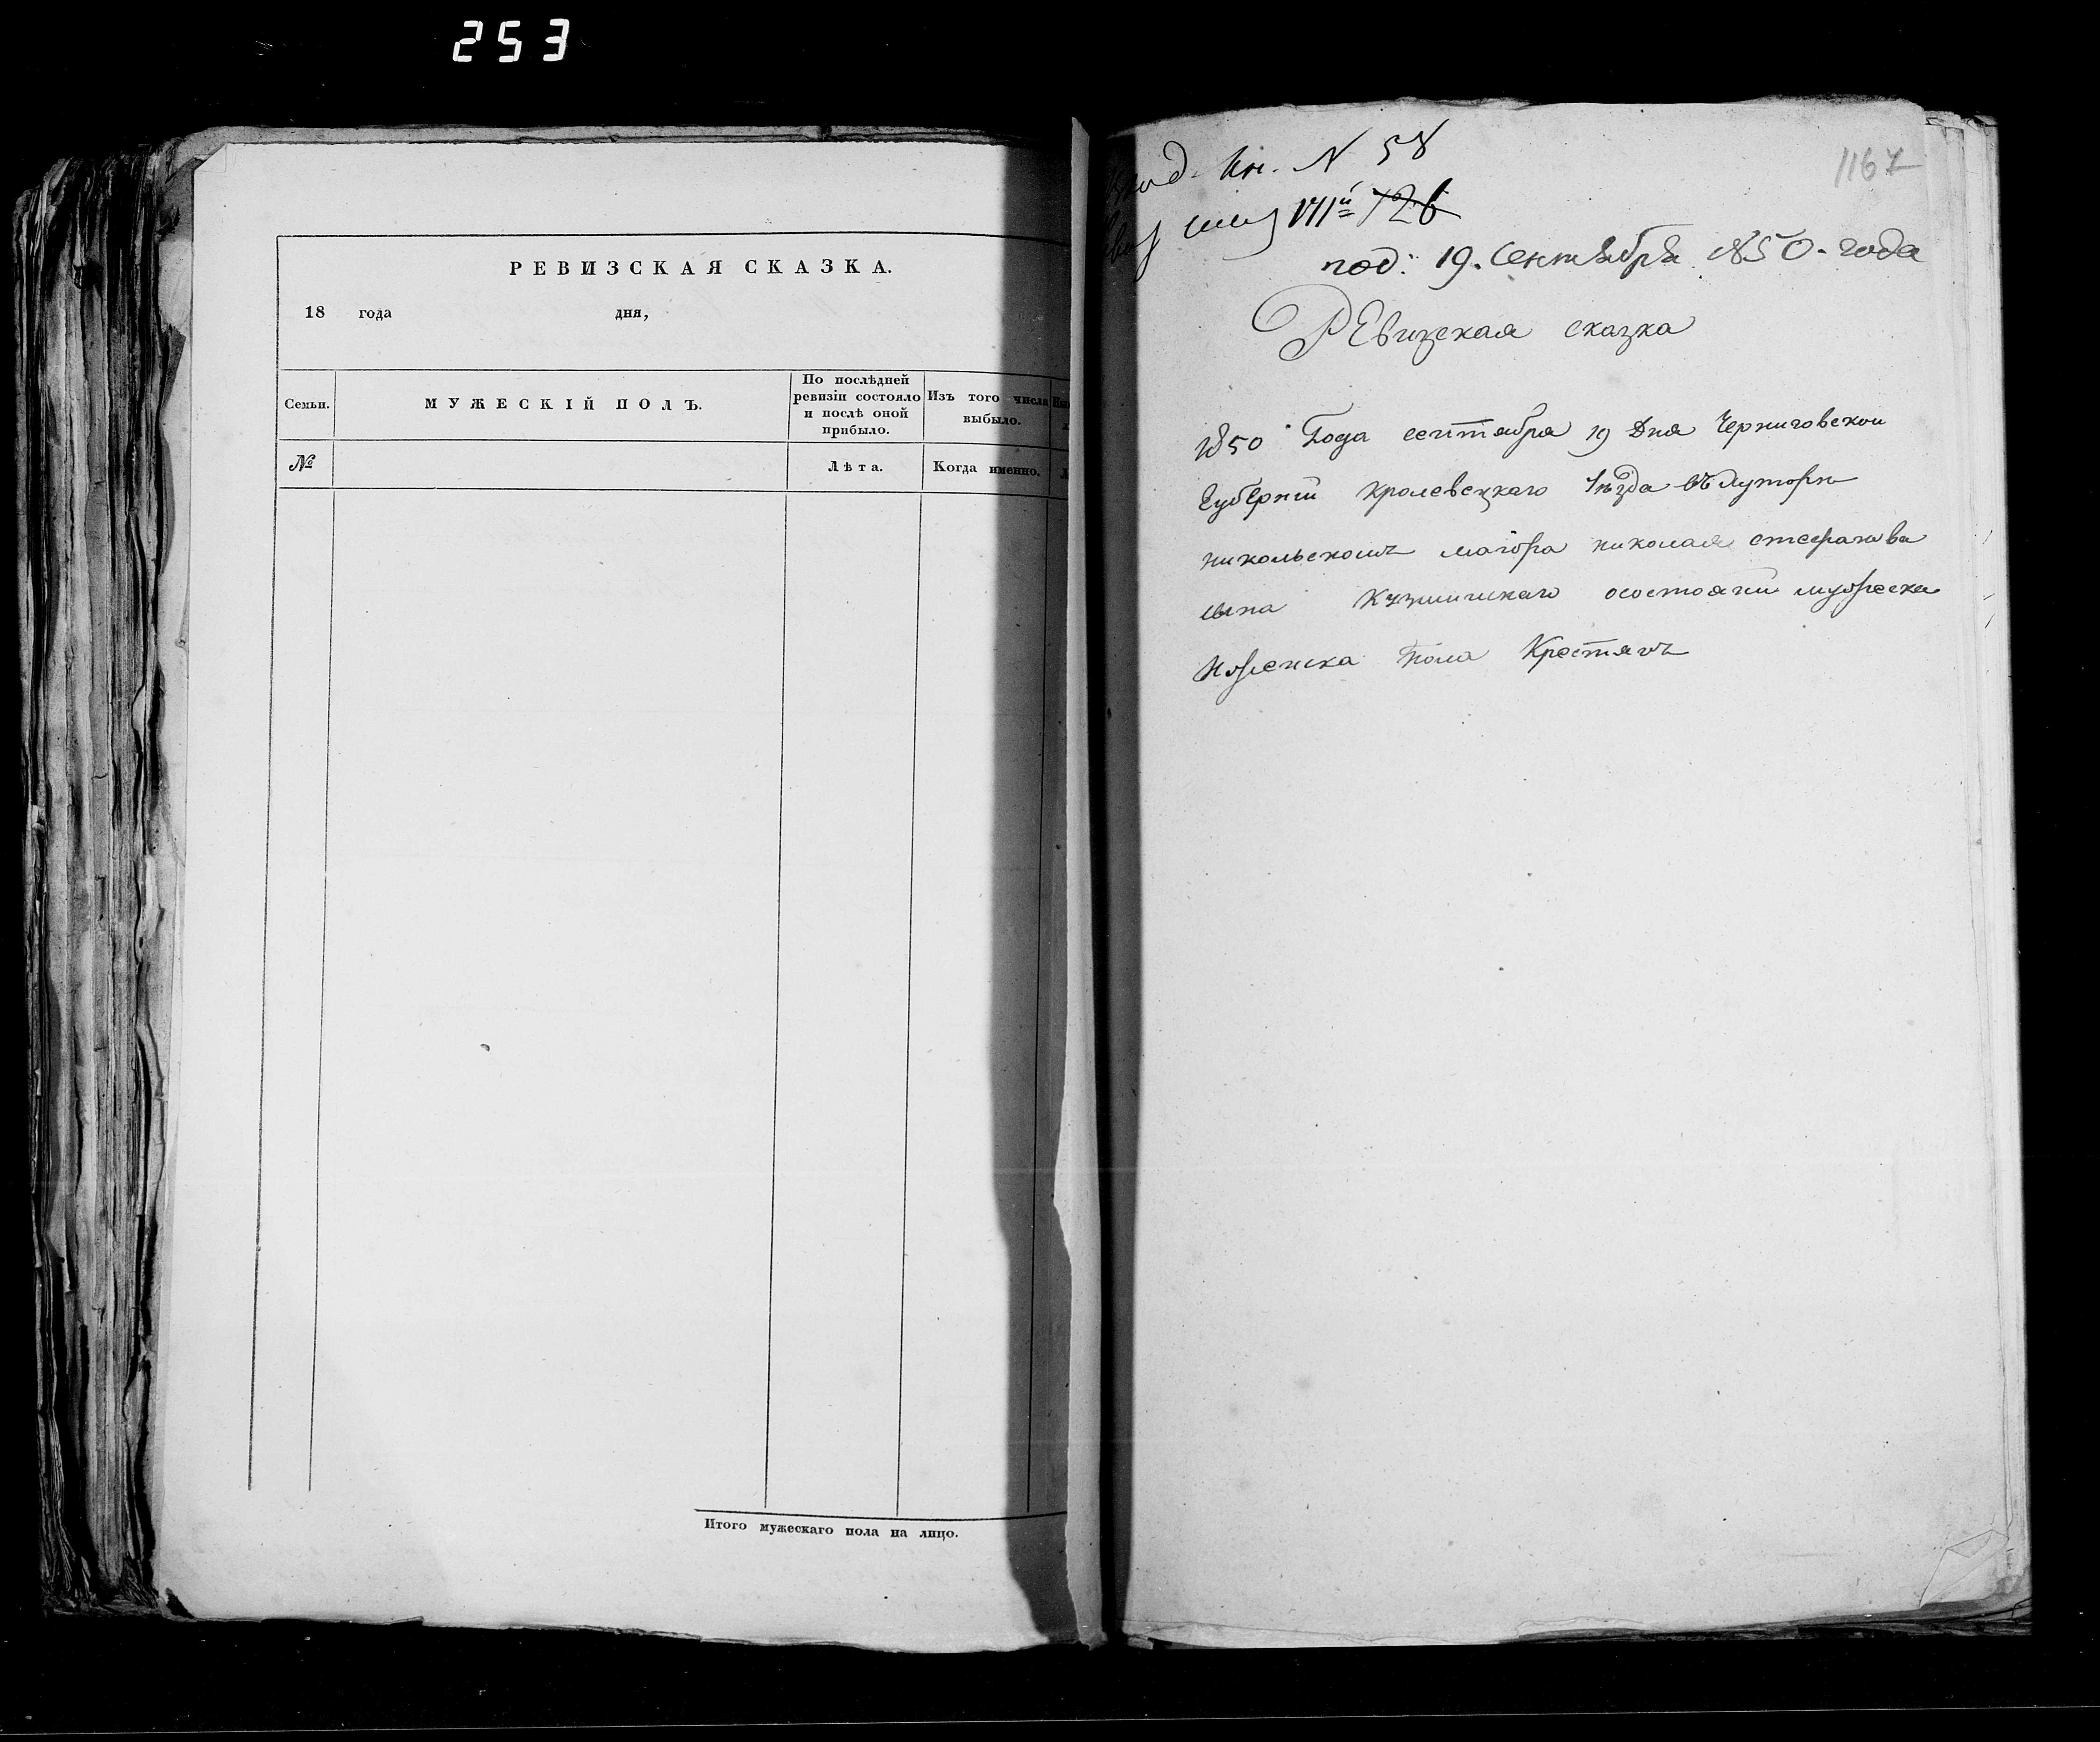 253
РЕВИЗСКАЯ СКАЗКА.
18 года дня,
Семьи.
МУЖЕСКІЙ ПОЛЪ.
По послѣдней
ревизіи состояло
и послѣ оной
прибыло.
Изъ того числа
выбыло.
№
Лѣта.
Когда именно.
Итого мужескаго пола на лицо.
Кн. N 58
VIIIй 726
1167
под: 19. Сентября 1850. года
РЕвизская сказка
1850 Года сентября 19 Дня Черниговской
Губерніи Кролевецкаго Уѣзда въ хуторѣ
никольскомъ маіора николая
сына осостоящи мужеска
Иженска пола Крестянъ